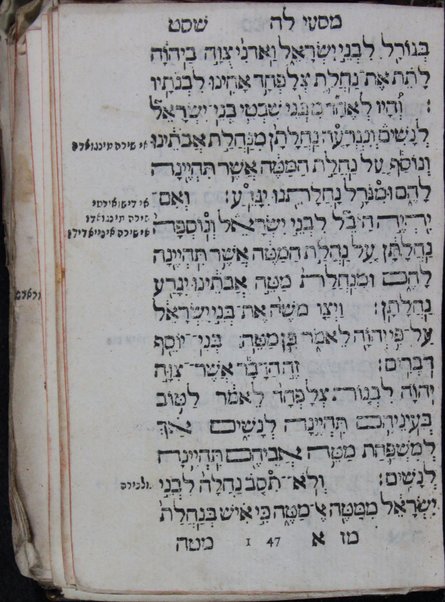 מסעי לה שסט
בְּגוֹרָל לִבְנֵי יִשְׂרָאֵל וַאדֹנִי צֻוָּה בַיהוָֹה
לָתֵת אֶת־נַחֲלַת צְלָפְחָד אָחִינוּ לִבְנֹתָיו
: וְהָיוּ לְאֶחָד מִבְּנֵי שִׁבְטֵי בְנֵי־יִשְׂרָאֵל
לְנָשִׁים וְנִגְרְעָה נַחֲלָתָן מִנַּחֲלַת אֲבֹתֵינוּ
אי שירה מינגואדה
וְנוֹסַף עַל נַחֲלַת הַמַּטֶּה אֲשֶׁר תִּהְיֶינָה
לָהֶם וּמִגֹּרַל נַחֲלָתֵנוּ יִגָּרֵעַ: וְאִם
שירה מינגואדו
יִהְיֶה הַיֹּבֵל לִבְנֵי יִשְׂרָאֵל וְנוֹסְפָה
אי שירה אינייאדידה
נַחֲלָתָן עַל נַחֲלַת הַמַּטֶּה אֲשֶׁר תִּהְיֶינָה
לָהֶם וּמִנַּחֲלַת מַטֵּה אֲבֹתֵינוּ יִגָּרַע
נַחֲלָתָן: וַיְצַו מֹשֶׁה אֶת־בְּנֵי יִשְׂרָאֵל
עַל־פִּי יְהוָֹה לֵאמֹר כֵּן מַטֵּה בְנֵי־יוֹסֵף
דֹּבְרִים: זֶה הַדָּבָר אֲשֶׁר־צִוָּה
יְהוָֹה לִבְנוֹת צְלָפְחָד לֵאמֹר לַטּוֹב
בְּעֵינֵיהֶם תִּהְיֶינָה לְנָשִׁים אַךְ
לְמִשְׁפַּחַת מַטֵּה אֲבִיהֶם תִּהְיֶינָה
לְנָשִׁים: וְלֹא־תִסֹּב נַחֲלָה לִבְנֵי
יִשְׂרָאֵל מִמַּטֶּה אֶל־מַטֶּה כִּי אִישׁ בְּנַחֲלַת
מז א 1 47 מטה